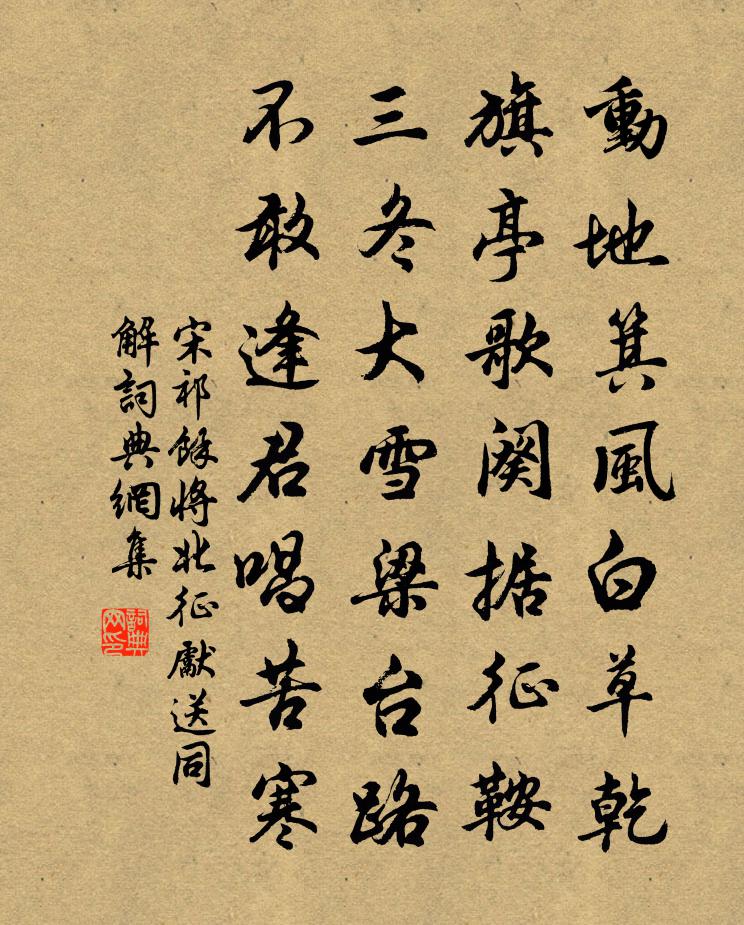 動地箕風白草乾
旗亭歌闋据征鞍
三冬大雪梁台路
不敢逢君唱苦寒
宋祁餘將北征獻送同
解詞典網集
詞典网印